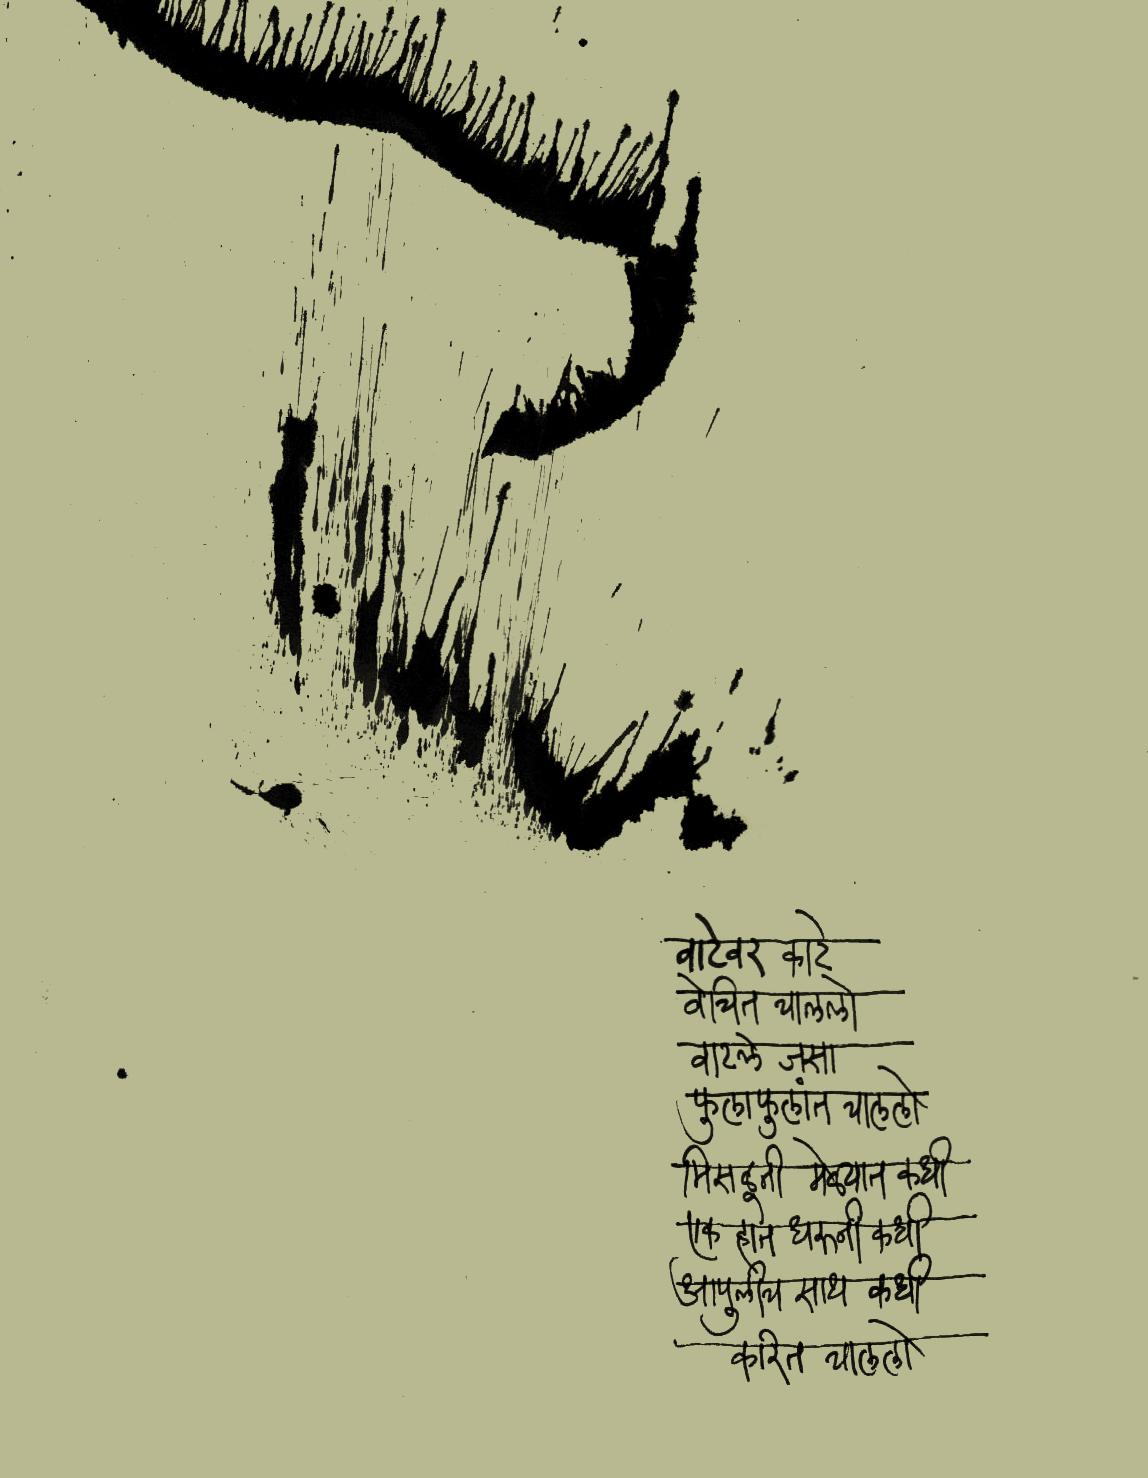 वाटेवर काटे
वेचित चाललो
वाटले जसा
फुलाफुलांत चाललो
मिसळूनी मेळ्यात कधी
एक हात धरूनी कधी
आपुलीच साथ कधी
करित चाललो